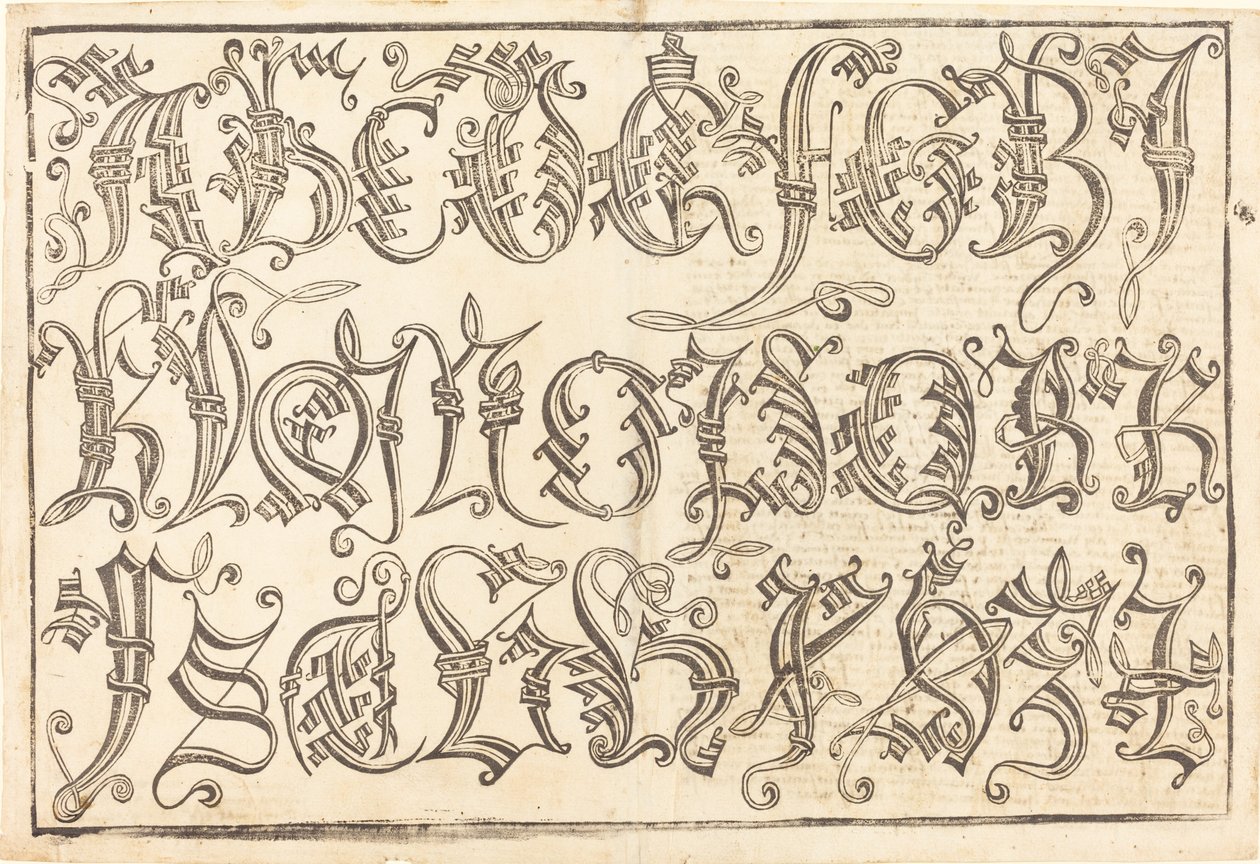 A B C D E F G H I
K L M N O P Q R R
S S T V X Z Z